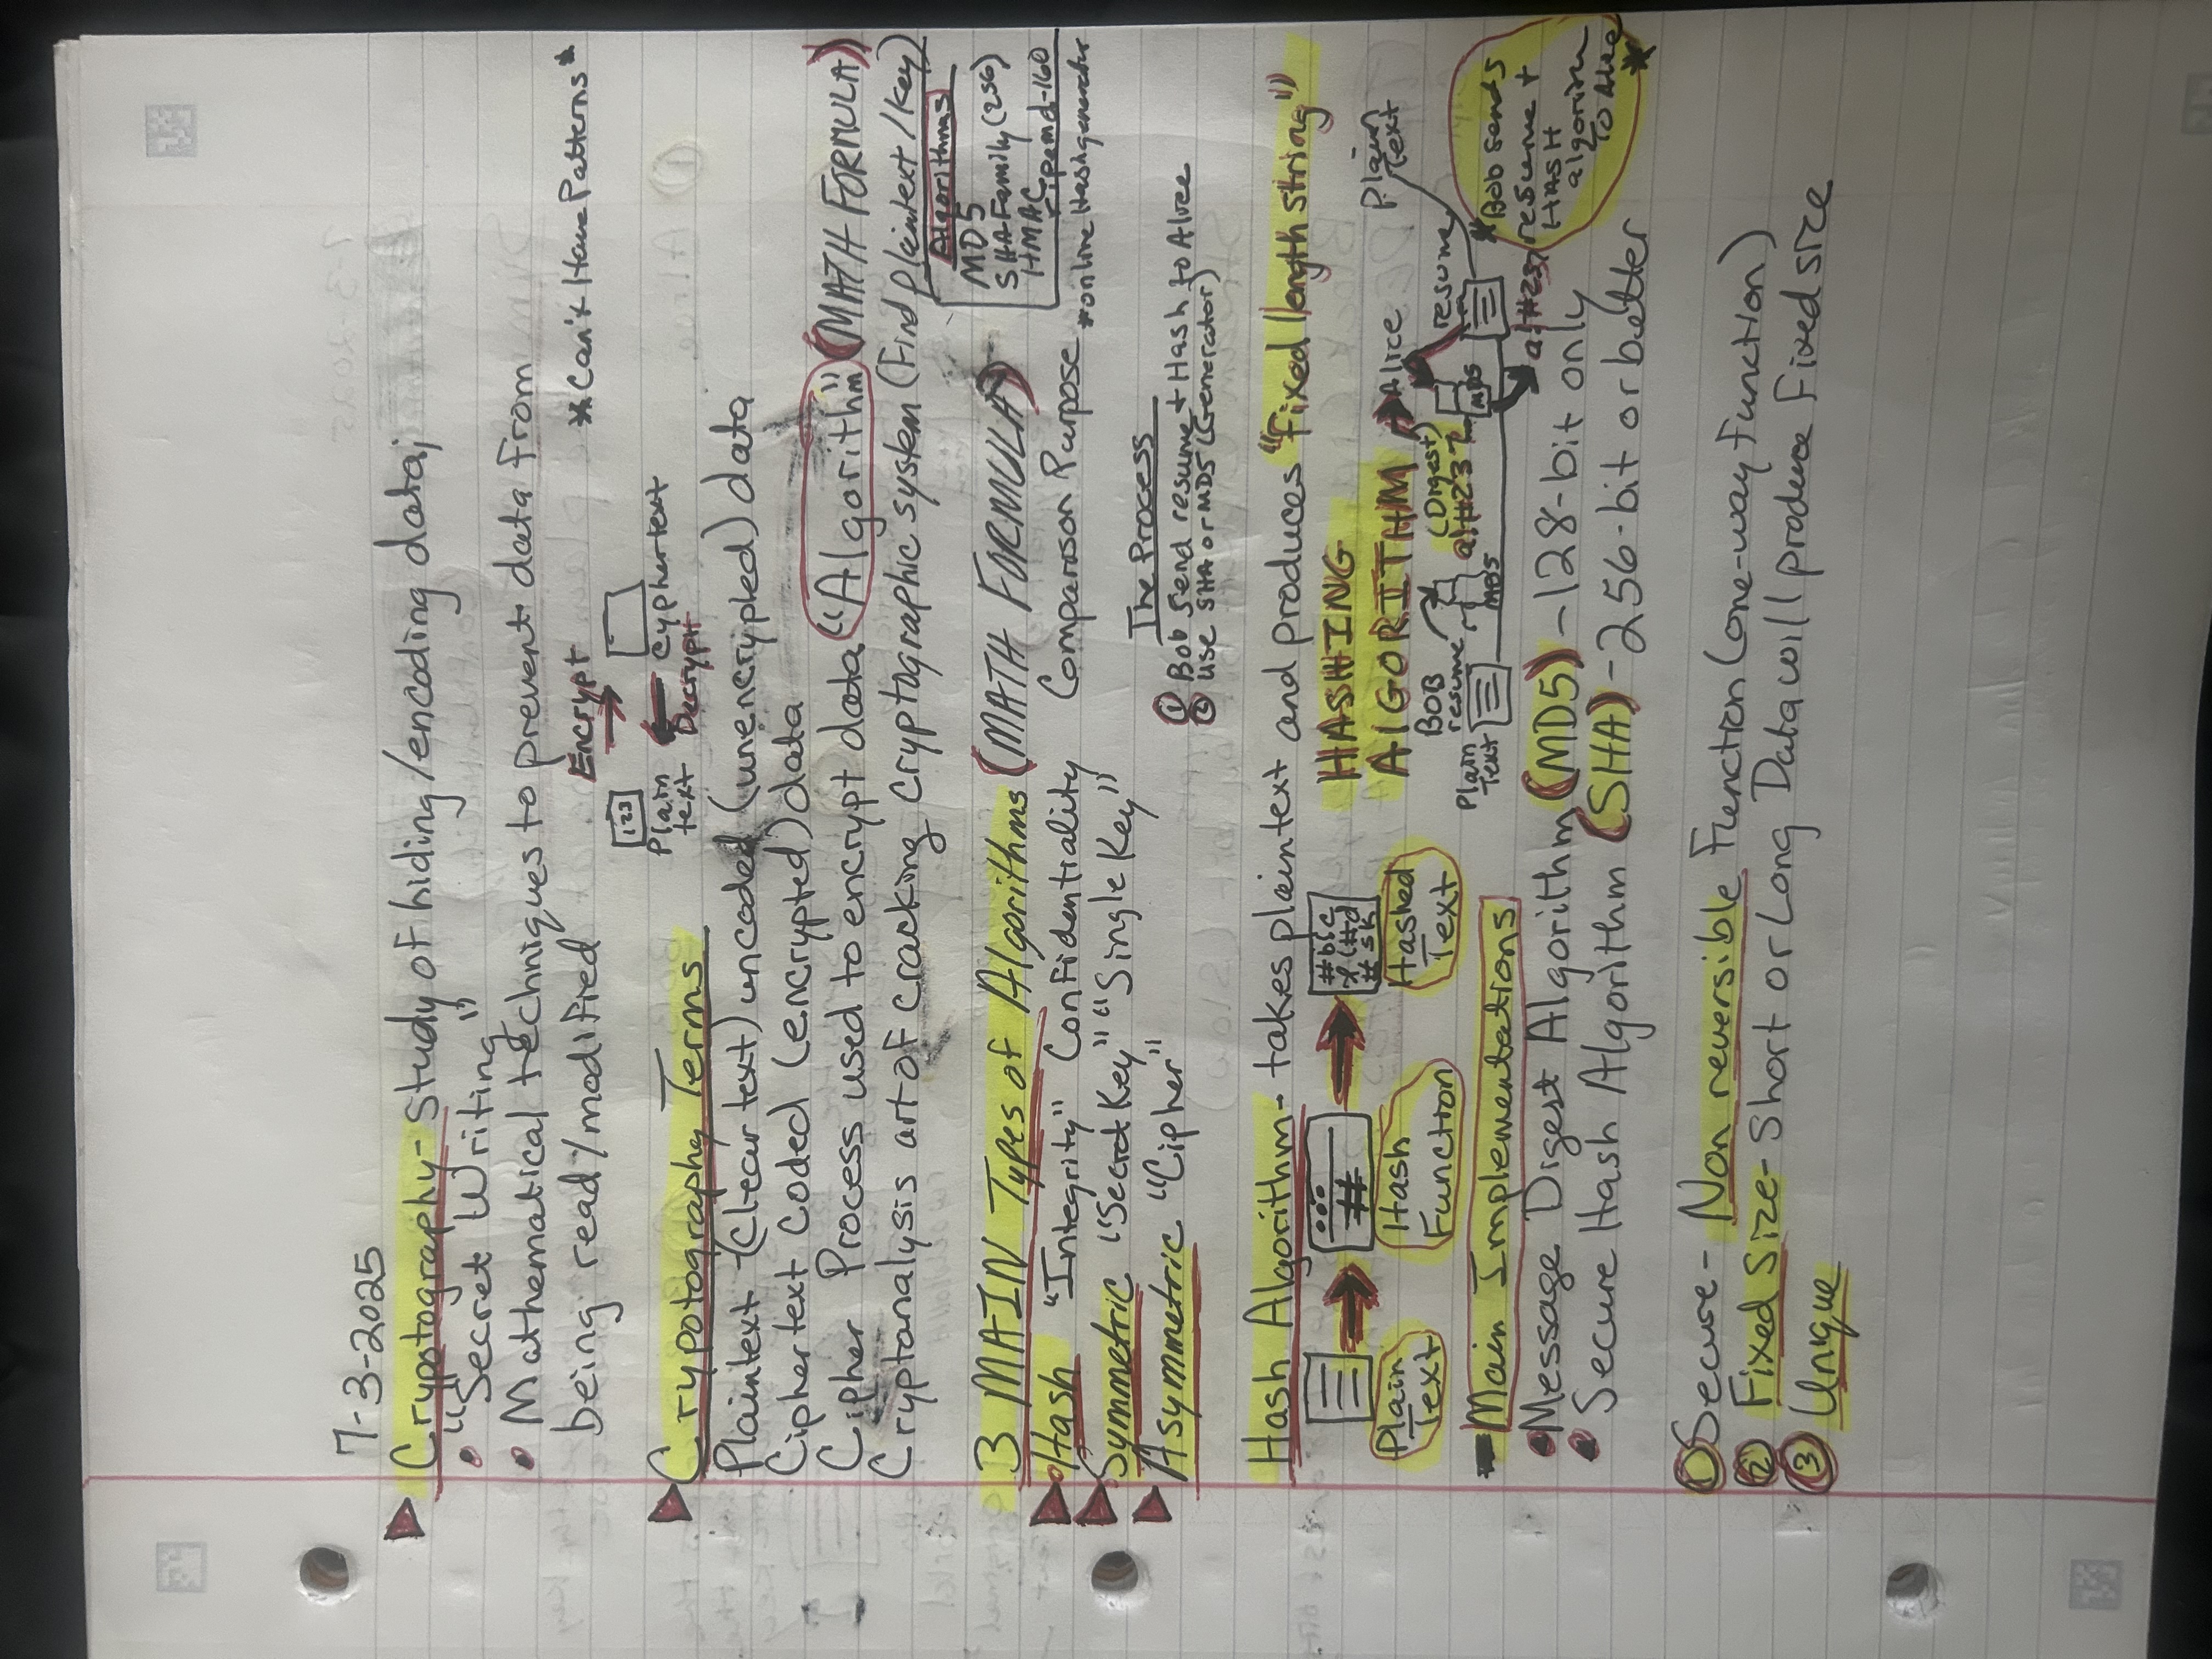 7-3-2025
Crypotography- study of hiding/encoding data;
• "Secret Writing"
• Mathematical techniques to prevent data from
being read/modified
*Can't Have Patterns*
Encrypt
123
Plain
text
Cyphertext
Decrypt
Crypotography Terms
Plaintext -(Clear text) uncoded (unencrypted) data
Ciphertext Coded (encrypted) data
Cipher Process used to encrypt data "Algorithm" (MATH FORMULA)
Cryptanalysis art of cracking cryptographic system (Find plaintext/key)
3 MAIN Types of Algorithms (MATH FORMULA)
Algorithms
MD5
SHA Family (256)
HMAC
ripemd-160
*online Hash generator
• Hash "Integrity" Confidentiality Comparison Purpose
Symmetric "Secret Key" "Single Key"
Asymmetric "Cipher"
The Process
① Bob Send resume + Hash to Alice
② use SHA or MD5 (Generator)
Hash Algorithm- takes plaintext and produces "Fixed length string"
##
#bic
#sk
Plain
Text
Hash
Function
Hashed
Text
HASHING
AlGORITHM
BOB
resume
Plain
Text
MD5
(Digest)
a!#237
Alice
MD5
a!#237
resume
Plain
Text
*Bob sends
resume +
HASH
algorithm
To Alice
*
- Main Implementations
• Message Digest Algorithm (MD5) -128-bit only
• Secure Hash Algorithm (SHA) -256-bit or better
① Secure- Non reversible Function (one-way function)
② Fixed Size- Short or Long Data will produce Fixed size
③ Unique